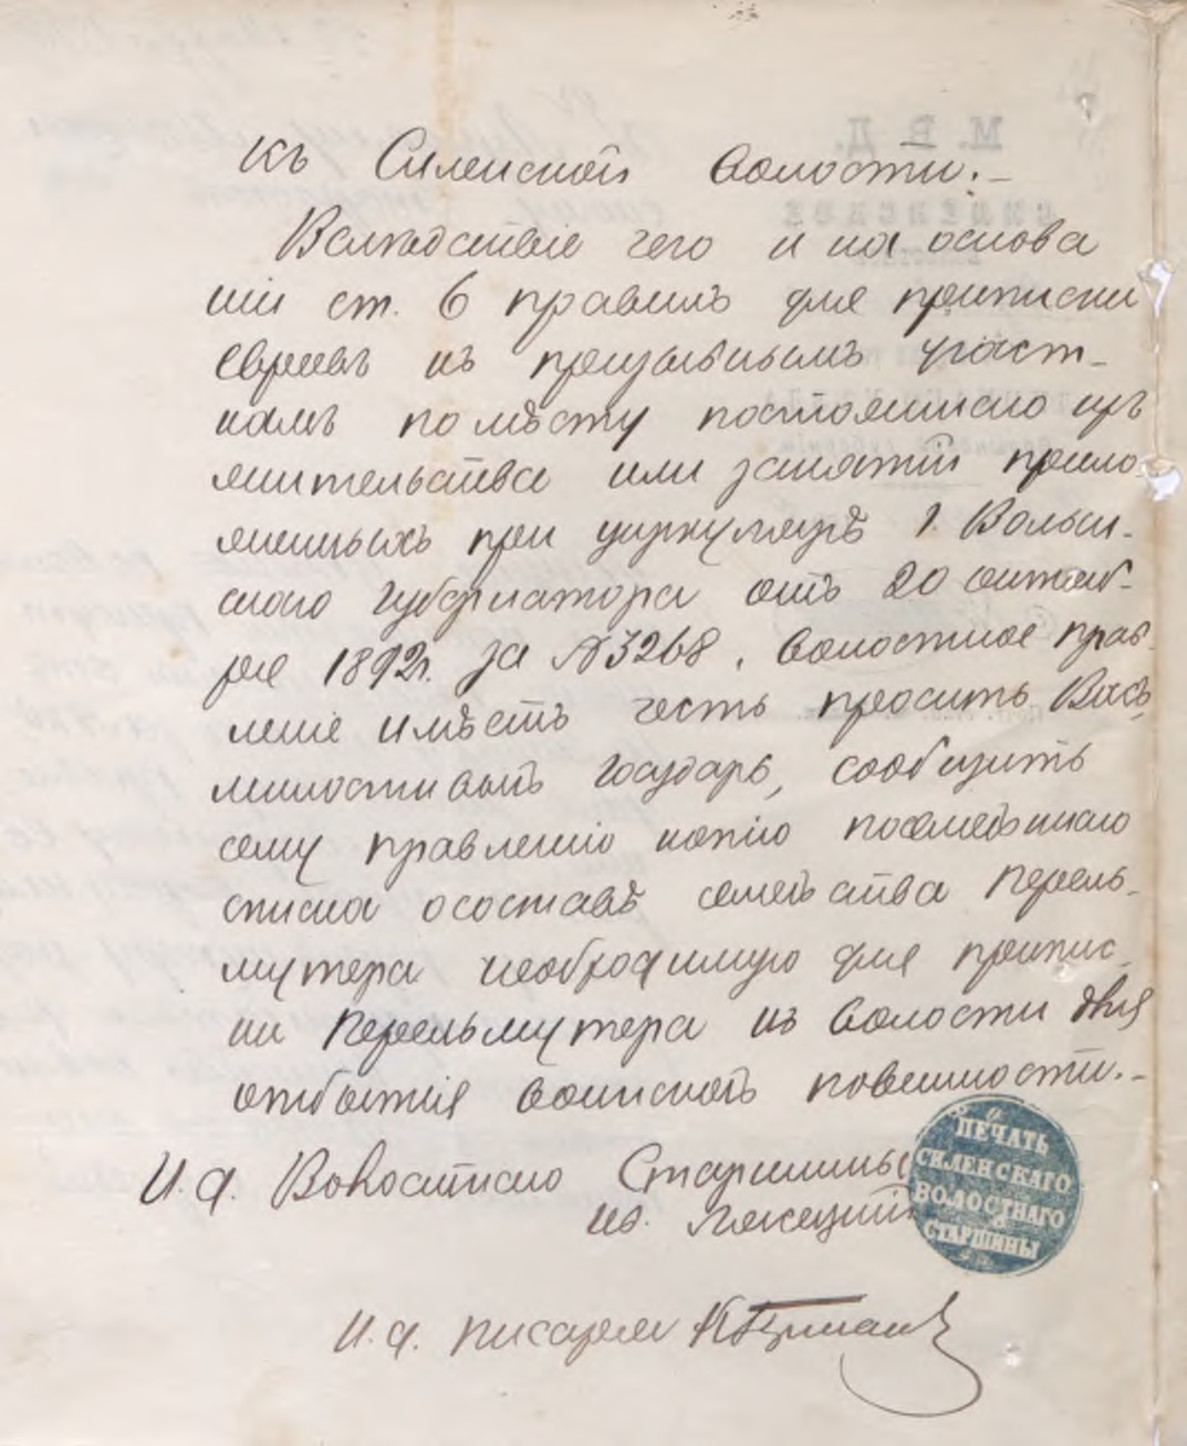 къ Силенской волости.-
Вслѣдствіе чего и на основа
ніи ст. 6 правилъ для приписки
евреевъ къ призывнымъ участ-
камъ по мѣсту постояннаго ихъ
жительства или занятій прило
женныхъ при циркулярѣ г. Волын-
скаго губернатора отъ 20 октяб-
ря 1892 г. за № 3268, волостное прав-
леніе имѣетъ честь просить Васъ,
милостивый государь, сообщить
сему правленію копію посемейнаго
списка о составѣ семейства Перель-
мутера необходимую для припис
ки Перельмутера къ волости для
отбытія воинской повинности.-
И. д. Волостного Старшины
ПЕЧАТЬ
СИЛЕНСКАГО
ВОЛОСТНАГО
СТАРШИНЫ
И. д. писаря